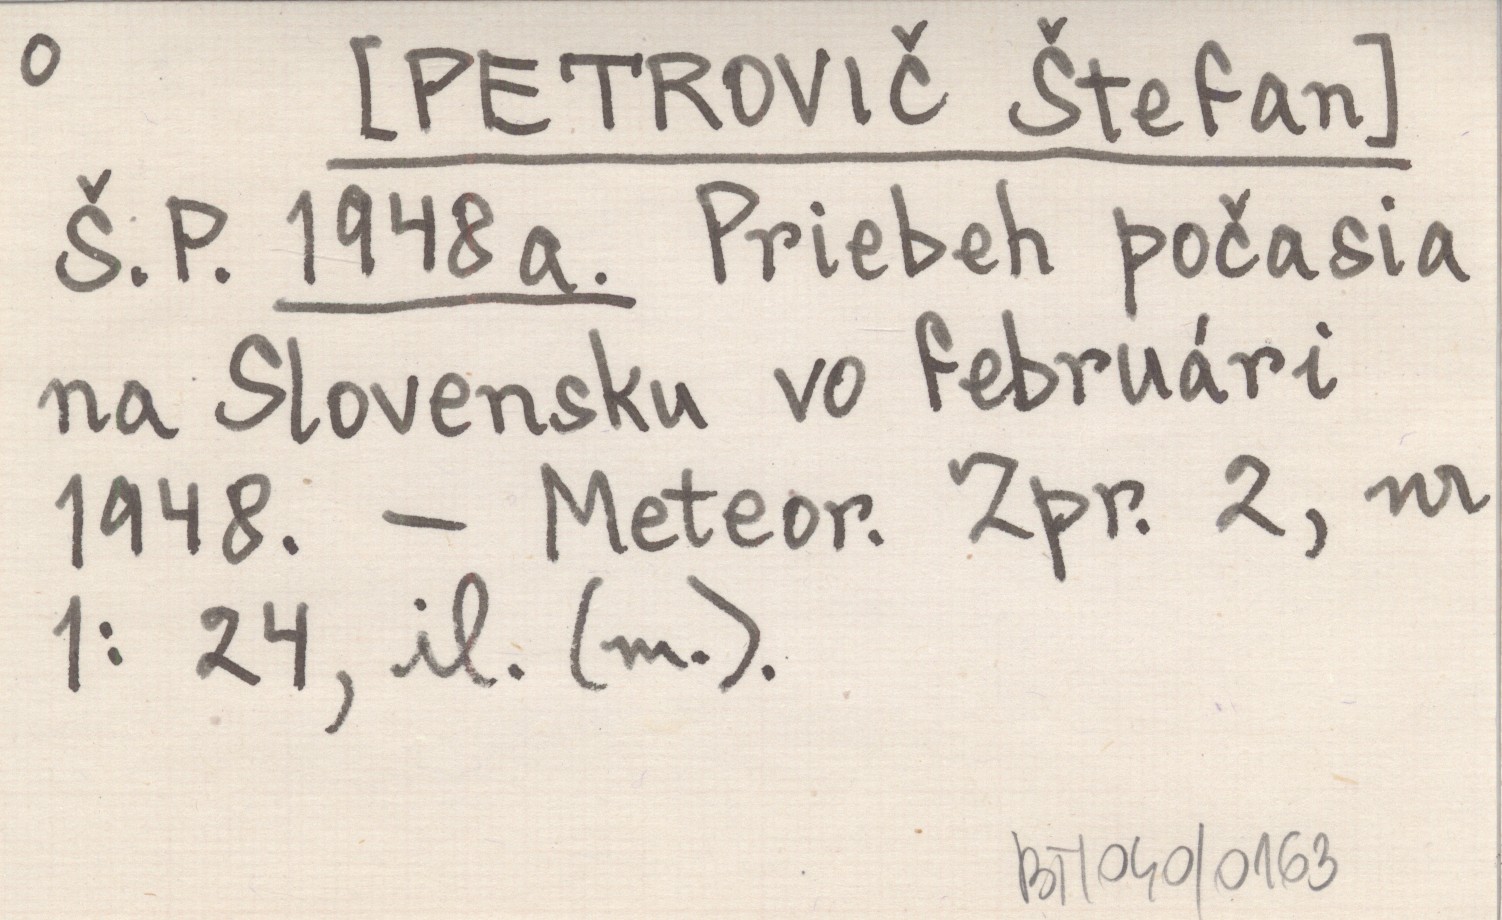 o [PETROVIČ Štefan]
Š.P. 1948a. Priebeh počasia
na Slovensku vo februári
1948. – Meteor. Zpr. 2, nr
1: 24, il. (m.).
BT/040/0163